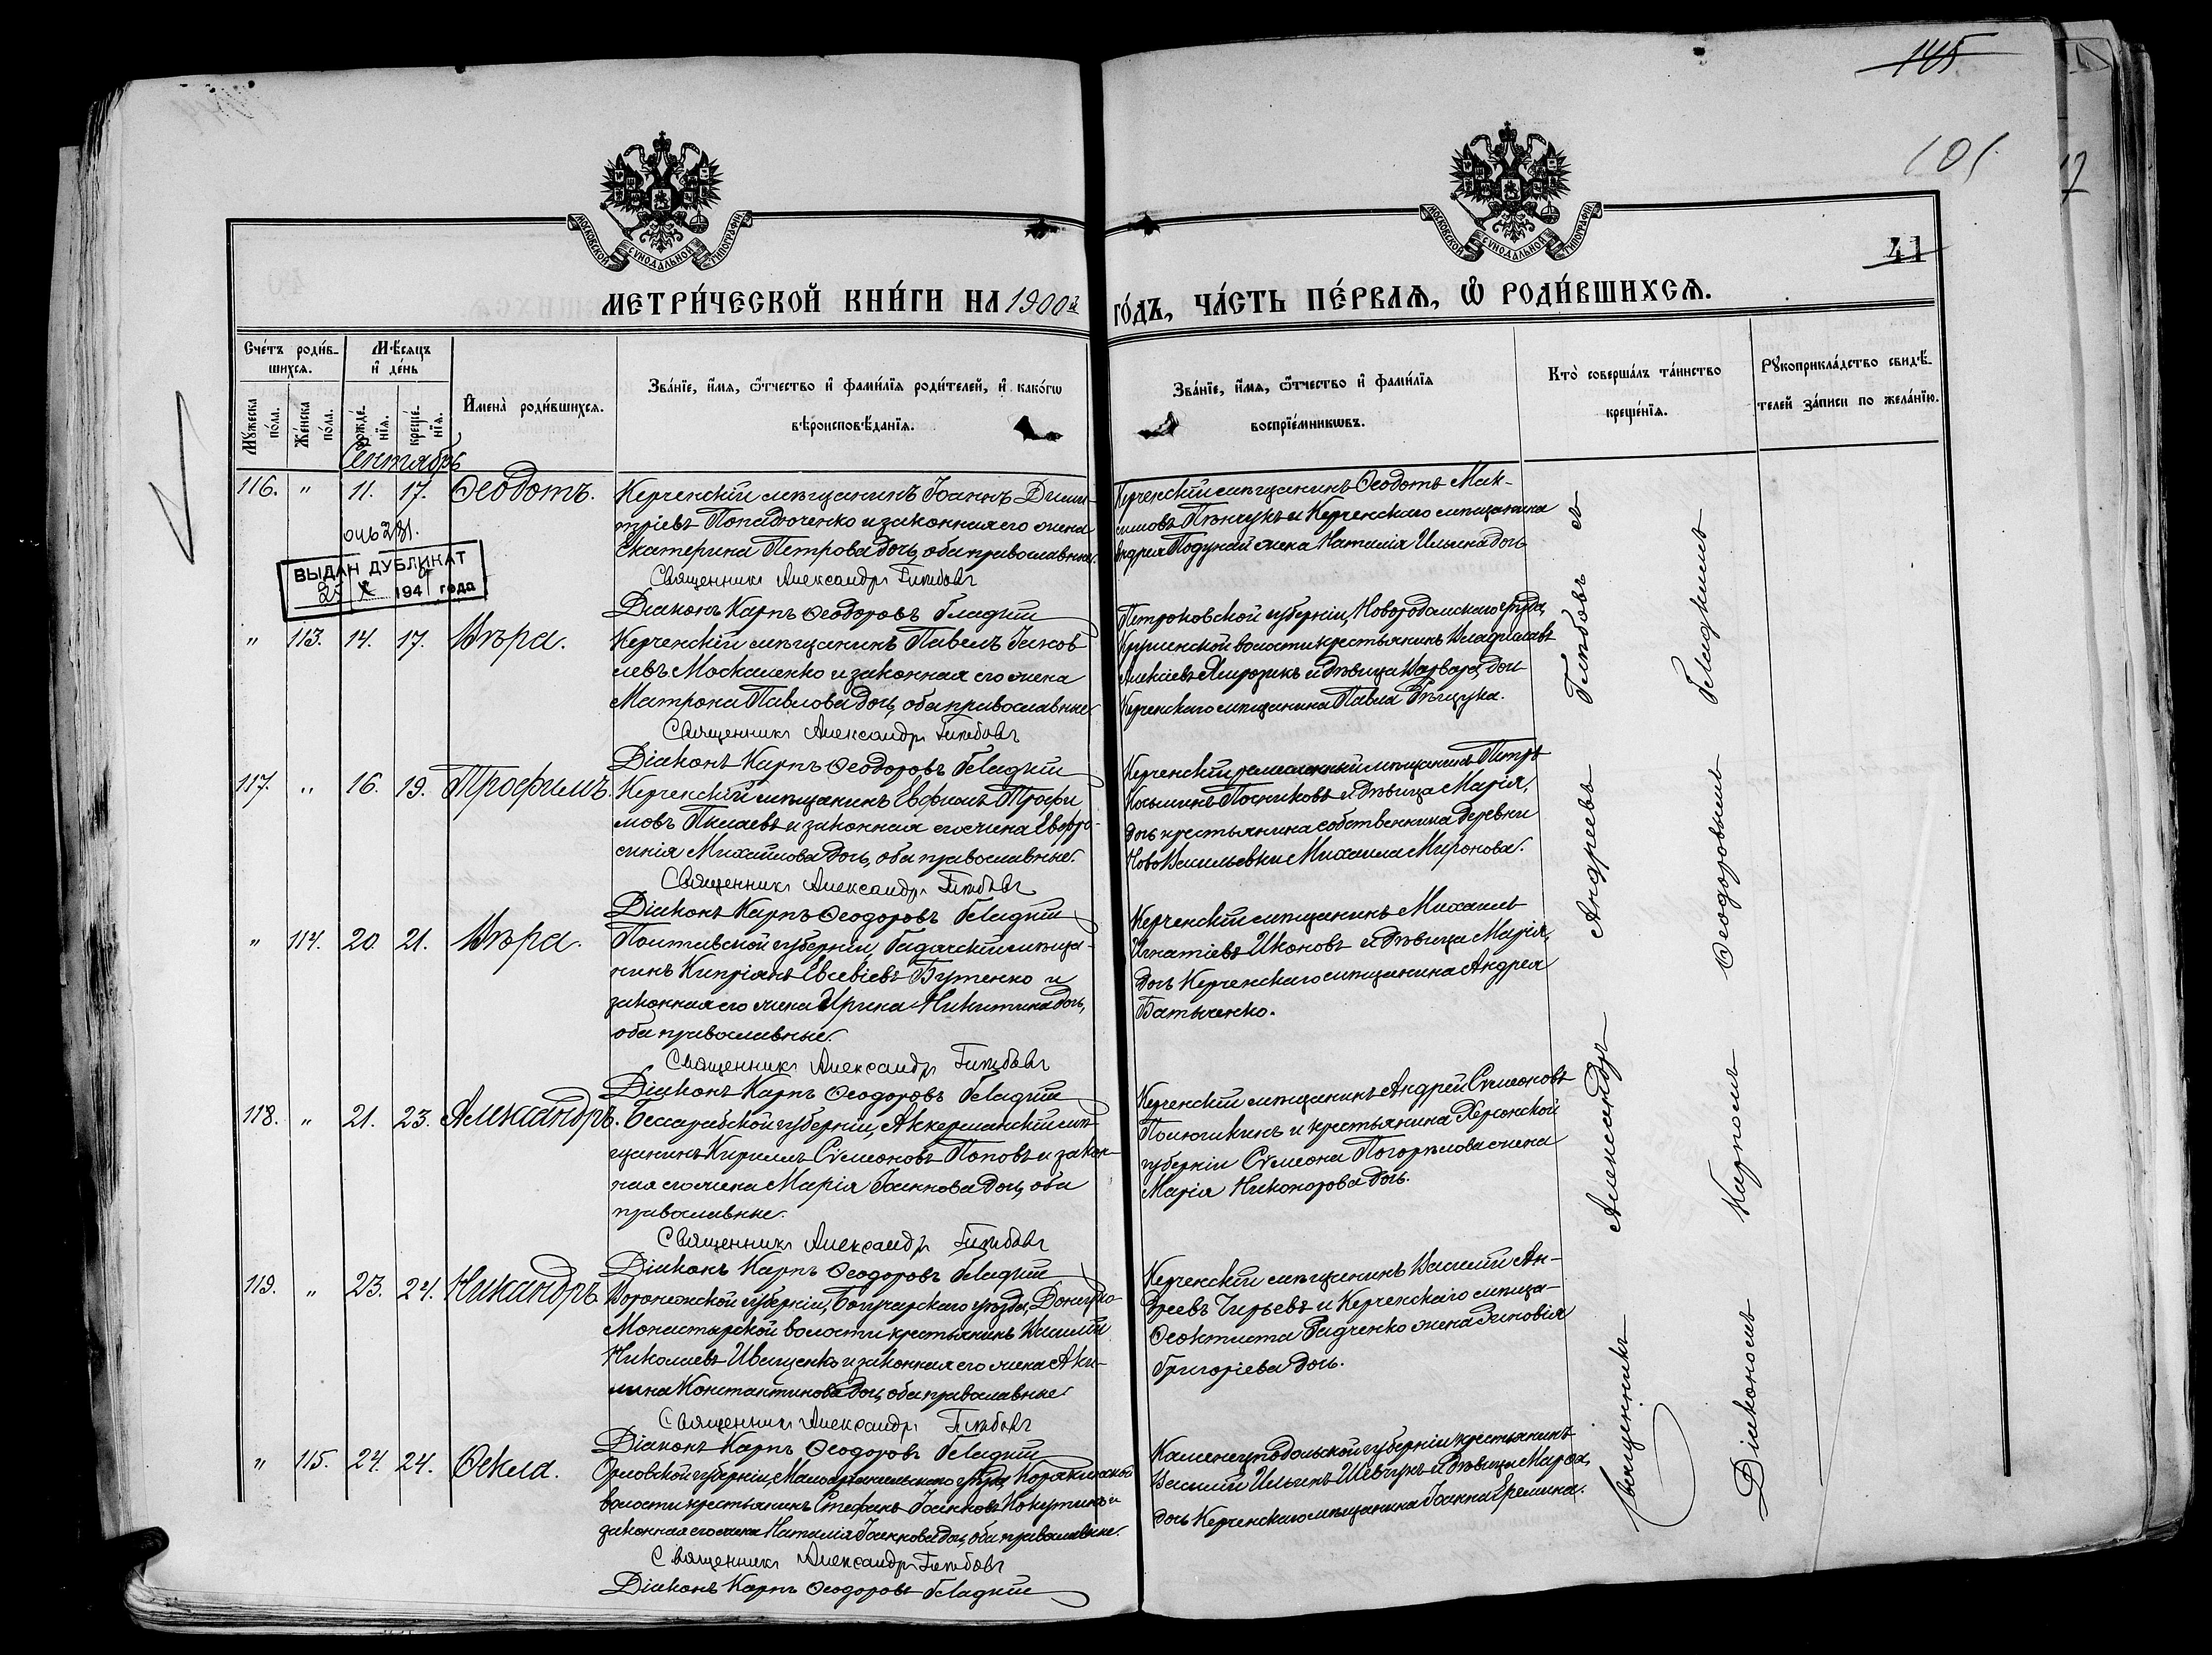 145
101
17
МОСКОВСКОЙ СѴНОДАЛЬНОЙ ТИПОГРАФІИ
МОСКОВСКОЙ СѴНОДАЛЬНОЙ ТИПОГРАФІИ
41
МЕТРИ́ЧЕСКОЙ КНИ́ГИ НА 1900й ГО́ДЪ, ЧА́СТЬ ПЕ́РВАѦ, Ѽ РОДИ́ВШИХСѦ.
Сче́тъ роди́в-
шихсѧ.
Мꙋ́жеска по́ла.
Же́нска по́ла.
Мѣ́сяцъ
и҆ де́нь
рожде́-
нїѧ.
креще́-
нїѧ.
И҆мена̀ роди́вшихсѧ.
Зва́нїе, и҆́мѧ, ѻ҆́тчество и҆ фами́лїѧ роди́телей, и҆ како́гѡ
вѣроисповѣ́данїѧ.
Зва́нїе, и҆́мѧ, ѻ҆́тчество и҆ фами́лїѧ
воспрїе́мникѡвъ.
Кто̀ соверша́лъ та́инство
креще́нїѧ.
Рꙋкоприкла́дство свидѣ́-
телей за́писи по жела́нїю.
Сентябрь
116. " 11. 17. Ѳеодотъ.
Керченскій мѣщанинъ Іоаннъ Дими-
тріевъ Попадюченко и законная его жена
Екатерина Петрова дочь, оба православные.
Священникъ Александръ Глѣбовъ
Діаконъ Карпъ Ѳеодоровъ Гладкій
Керченскій мѣщанинъ Ѳеодотъ Мак-
симовъ Пѣнчукъ и Керченскаго мѣщанина
Андрея Подунай жена Наталія Ильина дочь
ВЫДАН ДУБЛИКАТ
25 X 194 года
" 113. 14. 17. Вѣра.
Керченскій мѣщанинъ Павелъ Іаков-
левъ Москаленко и законная его жена
Матрона Павлова дочь, оба православные
Священникъ Александръ Глѣбовъ
Діаконъ Карпъ Ѳеодоровъ Гладкій
Петроковской губерніи, Новорадомскаго уѣзда,
волости крестьянинъ Владиславъ
Алексѣевъ и дѣвица Варвара, дочь
Керченскаго мѣщанина Павла
117. " 16. 19. Трофимъ.
Керченскій мѣщанинъ Евфимъ Трофи-
мовъ Пилаевъ и законная его жена Евфро-
синія Михаилова дочь, оба православные.
Священникъ Александръ Глѣбовъ
Діаконъ Карпъ Ѳеодоровъ Гладкій
Керченскій ремесленный мѣщанинъ Петръ
Косьминъ Посниковъ и дѣвица Марія,
дочь крестьянина собственника деревни
НовоВасильевки Михаила Миронова.
" 114. 20. 21. Вѣра.
Полтавской губерніи, Гадячскій мѣща-
нинъ Кипріанъ Евсевіевъ Бутенко и
законная его жена Ирина Никитина дочь,
оба православные.
Священникъ Александръ Глѣбовъ
Діаконъ Карпъ Ѳеодоровъ Гладкій
Керченскій мѣщанинъ Михаилъ
Игнатіевъ Иконовъ и дѣвица Марія,
дочь Керченскаго мѣщанина Андрея
Батыченко.
118. " 21. 23. Александръ.
Бессарабской губерніи, Аккерманскій мѣ-
щанинъ Кириллъ Сѵмеоновъ Поповъ и закон-
ная его жена Марія Іоаннова дочь, оба
православные.
Священникъ Александръ Глѣбовъ
Діаконъ Карпъ Ѳеодоровъ Гладкій
Керченскій мѣщанинъ Андрей Сѵмеоновъ
и крестьянина Херсонской
губерніи Сѵмеона Погорѣлова жена
Марія Никонорова дочь.
119. " 23. 24. Никандръ.
Воронежской губерніи, Богучарскаго уѣзда, Донецко-
Монастырской волости крестьянинъ Василій
Николаевъ Иващенко и законная его жена Аки-
лина Константинова дочь, оба православные.
Священникъ Александръ Глѣбовъ
Діаконъ Карпъ Ѳеодоровъ Гладкій
Керченскій мѣщанинъ Василій Ан-
дреевъ Чирьевъ и Керченскаго мѣща-
Ѳеоктиста Радченко жена Зиновія
Григоріева дочь.
" 115. 24. 24. Ѳекла.
Орловской губерніи, Малоархангельскаго уѣзда,
волости крестьянинъ Стефанъ Іоанновъ и
законная его жена Наталія Іоаннова дочь, оба православные.
Священникъ Александръ Глѣбовъ
Діаконъ Карпъ Ѳеодоровъ Гладкій
Каменецъ подольской губерніи крестьянинъ
Василій Ильинъ Шевчукъ и дѣвица Марѳа,
дочь Керченскаго мѣщанина Іоанна Еремина.
Священникъ Александръ Андреевъ Глѣбовъ съ
Діакономъ Карпомъ Ѳеодоровымъ Гладкимъ